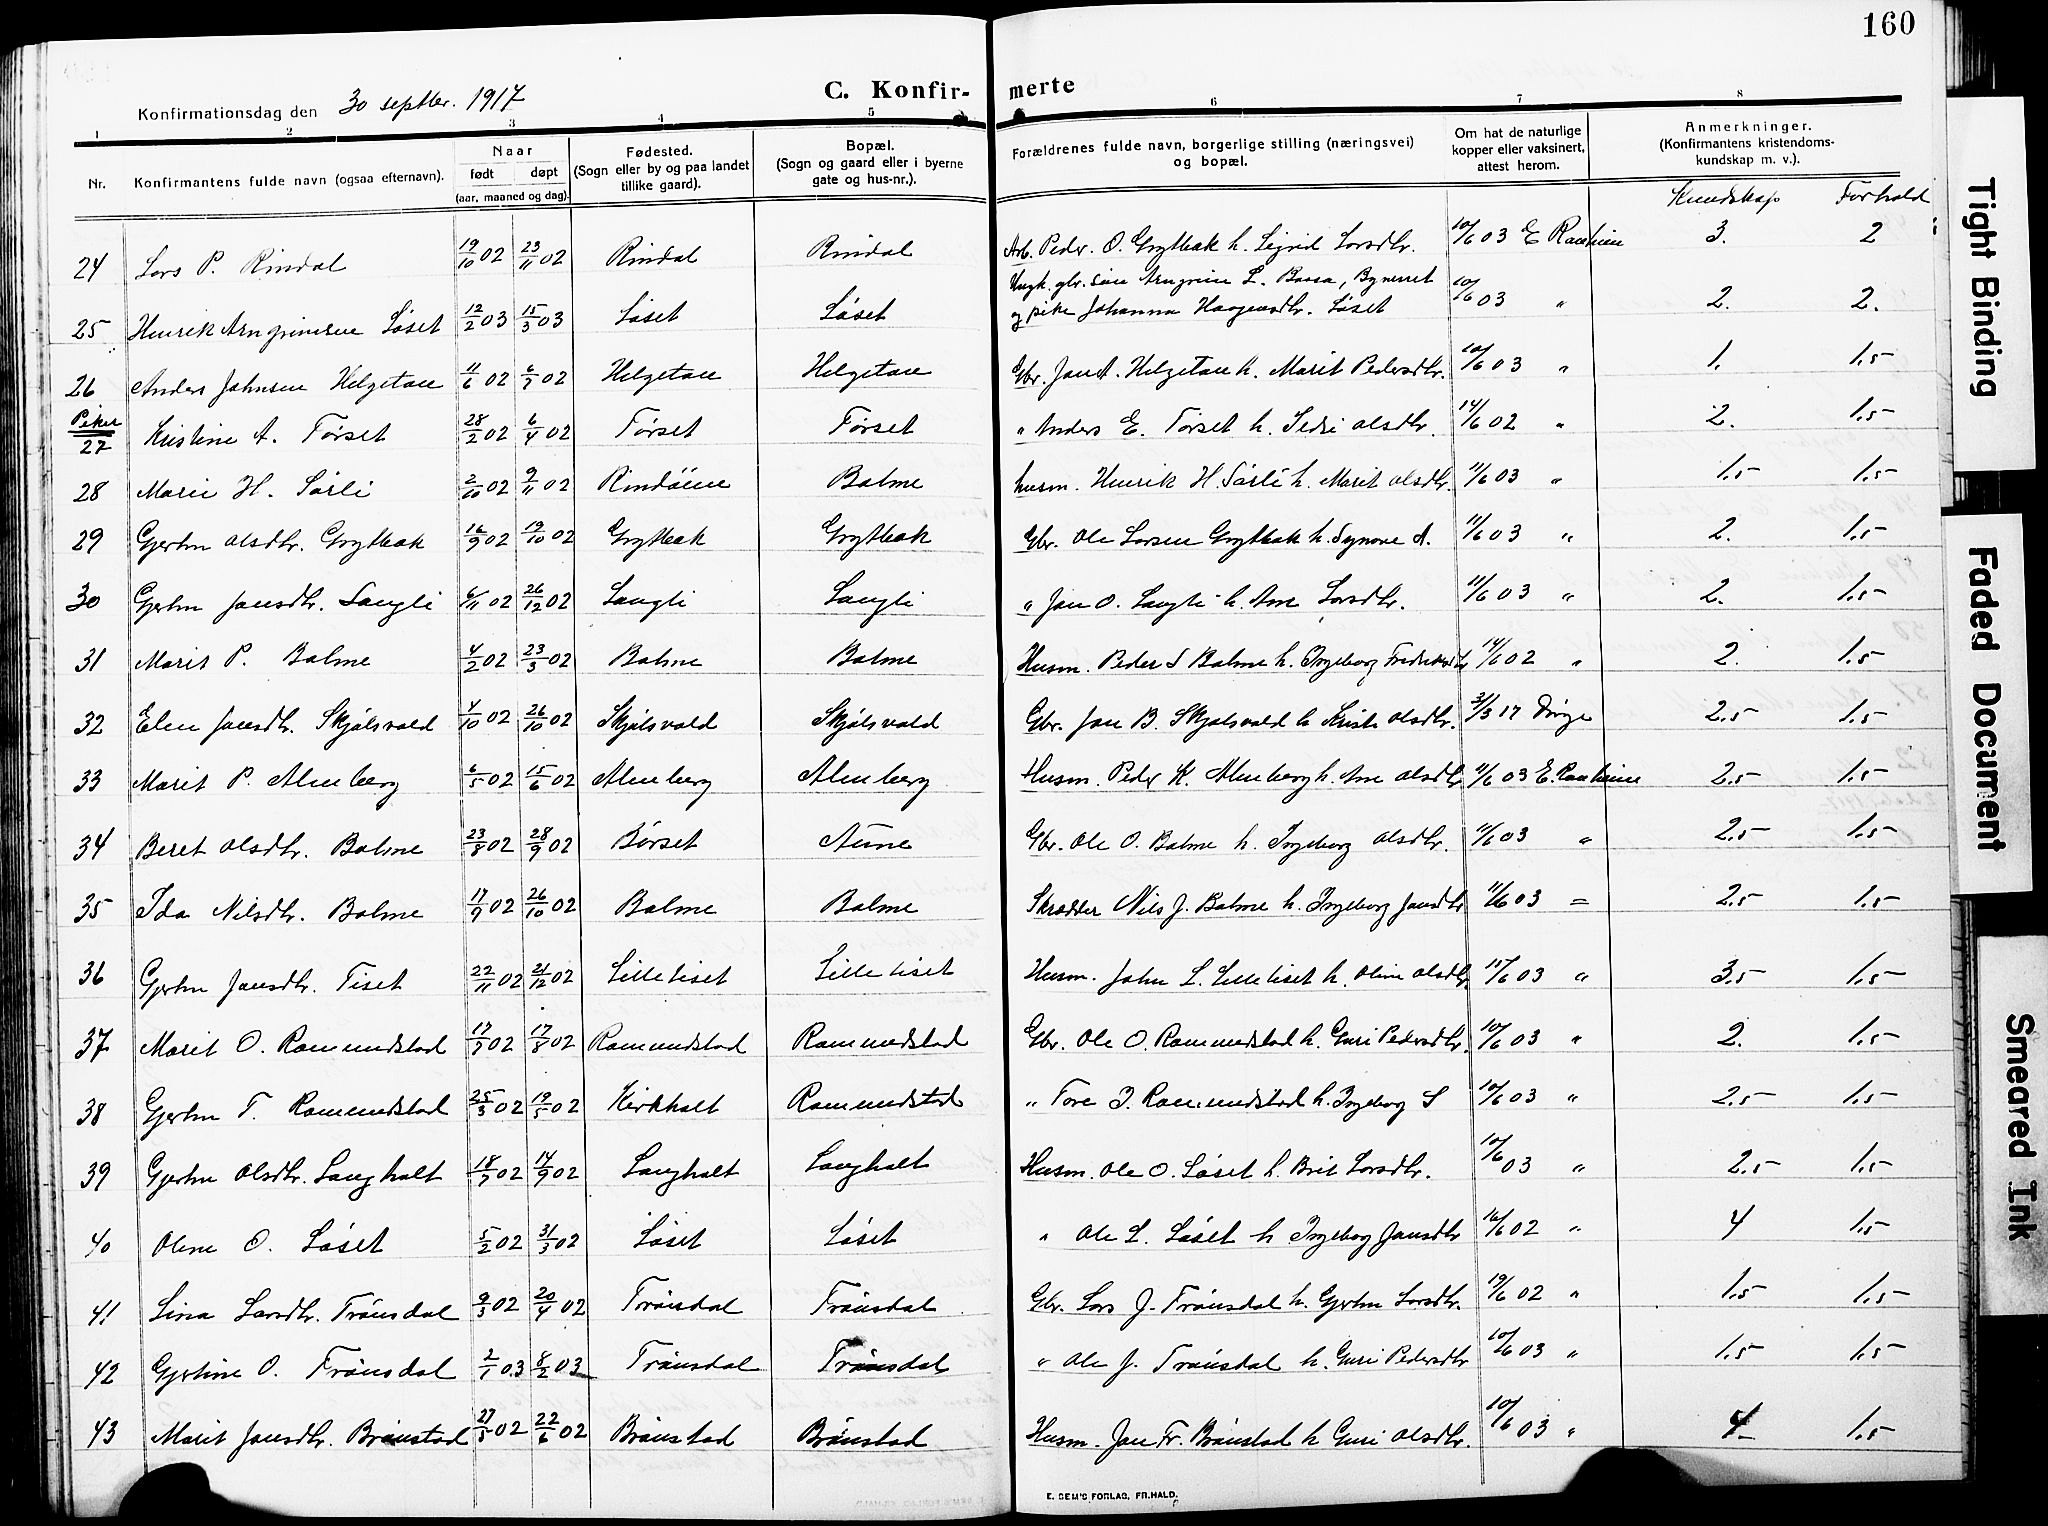 160
Konfirmationsdag den 30 septbr. 1917
C. Konfir- merte
1 2 3 4 5 6 7 8
Nr. Konfirmantens fulde navn (ogsaa efternavn). Naar født døpt (aar, maaned og dag). Fødested. (Sogn eller by og paa landet tillike gaard). Bopæl. (Sogn og gaard eller i byerne gate og hus-nr.). Forældrenes fulde navn, borgerlige stilling (næringsvei) og bopæl. Om hat de naturlige kopper eller vaksinert, attest herom. Anmerkninger. (Konfirmantens kristendoms- kundskap m. v.).
Kundskap Forhold
24 Lars P. Rindal 19/10 02 23/11 02 Rindal Rindal Arb. Peder O. Grytbak h. Sigrid Larsdtr. 10/6 03 E Ranheim 3. 2
25 Henrik Arngrimsen Løset 12/2 03 15/3 03 Løset Løset Ungk. gbr. søn Arngrim L. Baasa, Byneset og pike Johanna Haagensdtr. Løset 10/6 03 " 2. 2.
26 Anders Johnsen Helgetun 11/6 02 6/7 02 Helgetun Helgetun Gbr. Jon A. Helgetun h. Marit Pedersdtr. 10/6 03 " 1. 1.5
Piker
27 Kristine A. Tørset 28/2 02 6/4 02 Tørset Tørset " Anders E. Tørset h. Sedsi Olsdtr. 14/6 02 " 2. 1.5
28 Marie H. Sørli 2/10 02 9/11 02 Rindøien Bolme husm. Henrik H. Sørli h. Marit Olsdtr. 11/6 03 " 1.5 1.5
29 Gjertru Olsdtr. Grytbak 16/9 02 19/10 02 Grytbak Grytbak Gbr. Ole Larsen Grytbak h. Synøve A. 11/6 03 " 2. 1.5
30 Gjertru Jonsdtr. Langli 6/11 02 26/12 02 Langli Langli " Jon O. Langli h. Ane Larsdtr. 11/6 03 " 2. 1.5
31 Marit P. Bolme 4/2 02 23/3 02 Bolme Bolme Husm. Peder S Bolme h. Ingeborg Fredriksdtr 14/6 02 " 2. 1.5
32 Elen Jonsdtr. Skjølsvold 4/10 02 26/10 02 Skjølsvold Skjølsvold Gbr. Jon B. Skjølsvold h Kristi Olsdtr. 31/3 17 Dørge 2.5 1.5
33 Marit P. Almberg 6/5 02 15/6 02 Almberg Almberg Husm. Peder K. Almberg h. Ane Olsdtr 11/6 03 E. Ranheim 2.5 1.5
34 Beret Olsdtr. Bolme 23/8 02 28/9 02 Børset Aune Gbr. Ole O. Bolme h. Ingeborg Olsdtr. 11/6 03 " 2.5 1.5
35 Ida Nilsdtr. Bolme 17/9 02 26/10 02 Bolme Bolme Skrædder Nils J. Bolme h. Ingeborg Jonsdtr 11/6 03 = 2.5 1.5
36 Gjertru Jonsdtr. Tiset 22/11 02 21/12 02 Lilletiset Lilletiset Husm. John L. Lilletiset h. Oline Olsdtr. 11/6 03 " 3.5 1.5
37 Marit O. Romundstad 17/7 02 17/8 02 Romundstad Romundstad Gbr. Ole O. Romundstad h. Guri Pedersdtr. 10/6 03 " 2. 1.5
38 Gjertru T. Romundstad 25/3 02 19/5 02 Kirkholt Romundstad " Tore J. Romundstad h. Ingeborg S 10/6 03 " 2.5 1.5
39 Gjertru Olsdtr. Langholt 18/7 02 14/9 02 Langholt Langholt Husm. Ole O. Løset h. Brit Larsdtr. 10/6 03 " 2.5 1.5
40 Oline O. Løset 5/2 02 31/3 02 Løset Løset " Ole L. Løset h Ingeborg Jonsdtr 16/6 02 " 4 1.5
41 Lina Larsdtr. Trønsdal 9/3 02 20/4 02 Trønsdal Trønsdal Gbr. Lars J. Trønsdal h. Gjertru Larsdtr. 19/6 02 " 1.5 1.5
42 Gjertine O. Trønsdal 2/1 03 8/2 03 Trønsdal Trønsdal " Ole J. Trønsdal h. Guri Pedersdtr 10/6 03 " 1.5 1.5
43 Marit Jonsdtr. Brønstad 27/5 02 22/6 02 Brønstad Brønstad Husm. Jon Fr. Brønstad h Guri Olsdtr. 10/6 03 " 4 1.5
E. SEM'S FORLAG, FR.HALD.
Tight Binding
Faded Document
Smeared Ink